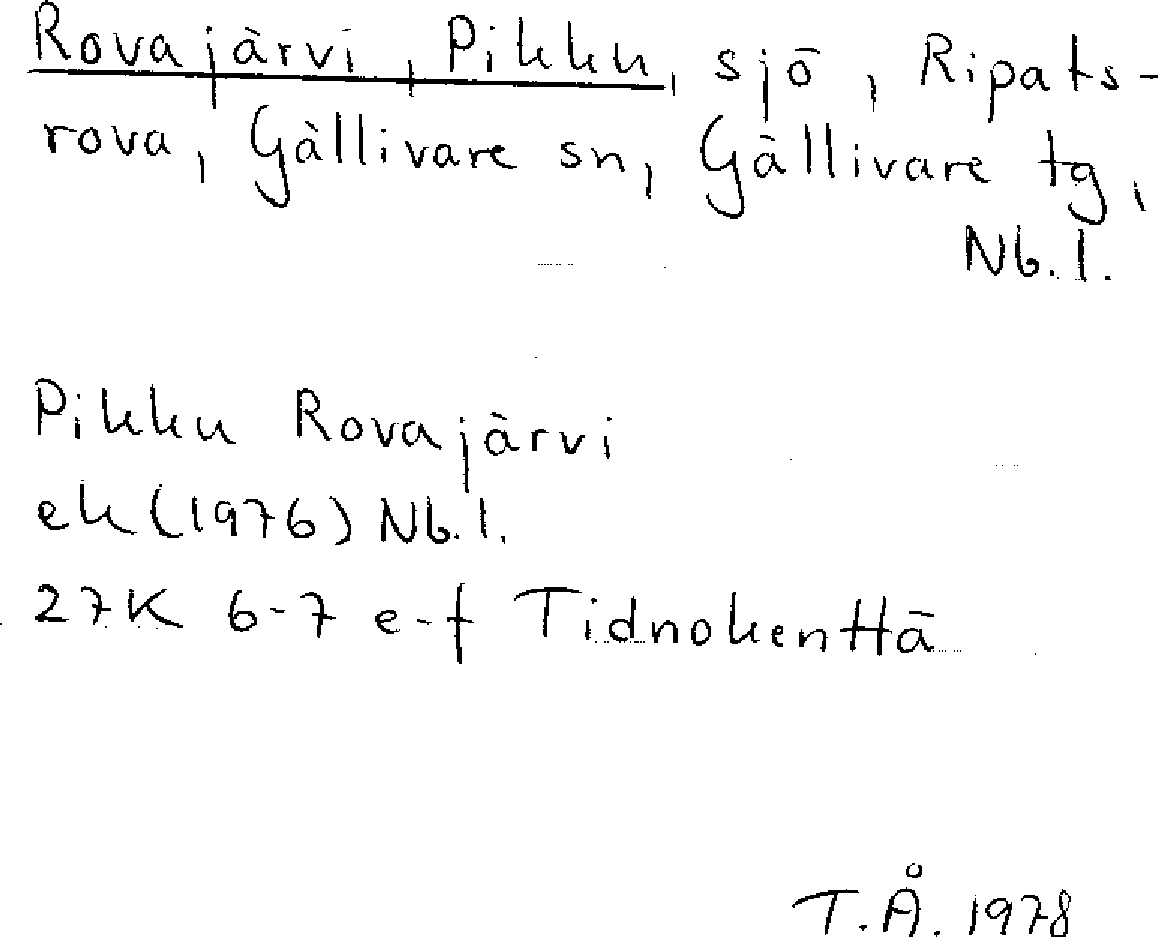 Rovajärvi, Pikku, sjö, Ripats-
rova, Gällivare sn, Gällivare tg,
Nb.l.
Pikku Rovajärvi
ek (1976) Nb.l.
27K 6-7 e-f Tidnokenttä
T.Å. 1978